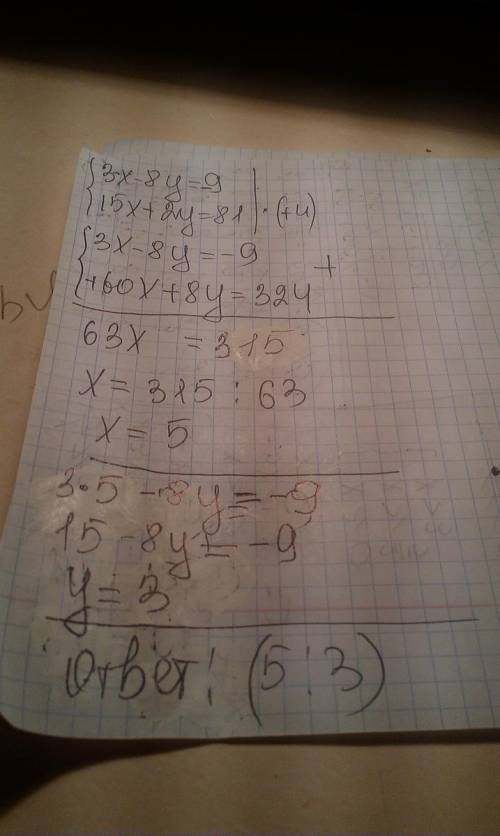 {3x-8y=-9
{15x+2y=81 |·(+4)
{3x-8y=-9
{+60x+8y=324 +
63x =315
x= 315 : 63
x= 5
3·5-8y=-9
15-8y=-9
y=3
Ответ: (5;3)